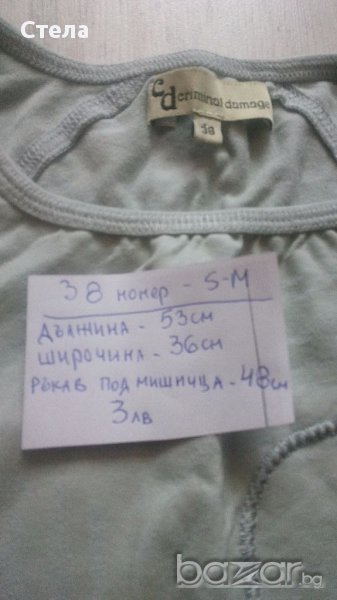 Стела
criminal damage
38
38 номер - S-M
Дължина - 53см
широчина - 36см
Ръкав под мишница - 48см
3лв
bazar.bg